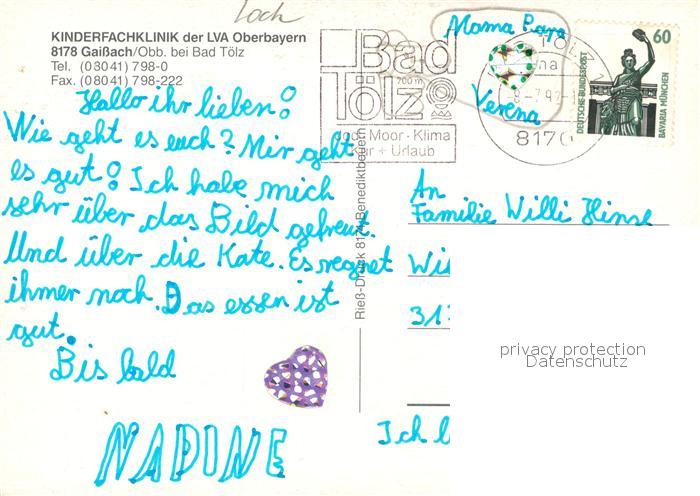 Loch
KINDERFACHKLINIK der LVA Oberbayern
8178 Gaißach/Obb. bei Bad Tölz
Tel. (08041) 798-0
Fax. (08041) 798-222
Hallo ihr lieben!
Wie geht es euch? Mir geht
es gut! Ich habe mich
sehr über das Bild gefreut.
Und über die Kate. Es regnet
ihmer noch. Das essen ist
gut.
Bis bald
NADINE
Rieß-Druck 8174 Benediktbeuern
Bad
700 m
Tölz
Moor-Klima
Kur + Urlaub
8170
Mama Papa
Verena
60
DEUTSCHE BUNDESPOST
BAVARIA MÜNCHEN
An
Familie Willi Hinse
Wi
31
Ich l
privacy protection
Datenschutz